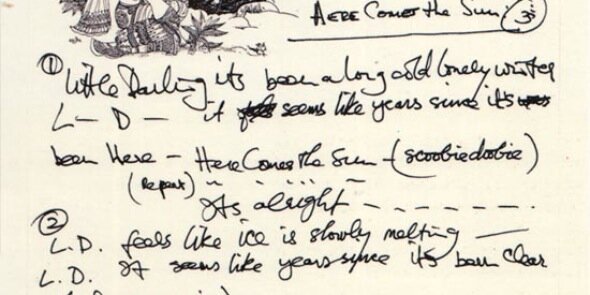 HERE Comes the Sun
①
Little Darling its been a long cold lonely winter
L — D — it seems like years since its
been Here — Here Comes the Sun — (scoobiedoobie)
(Repeat)
Its alright - - - - - - - .
②
L.D. feels like ice is slowly melting —
L.D. It seems like years since its been clear